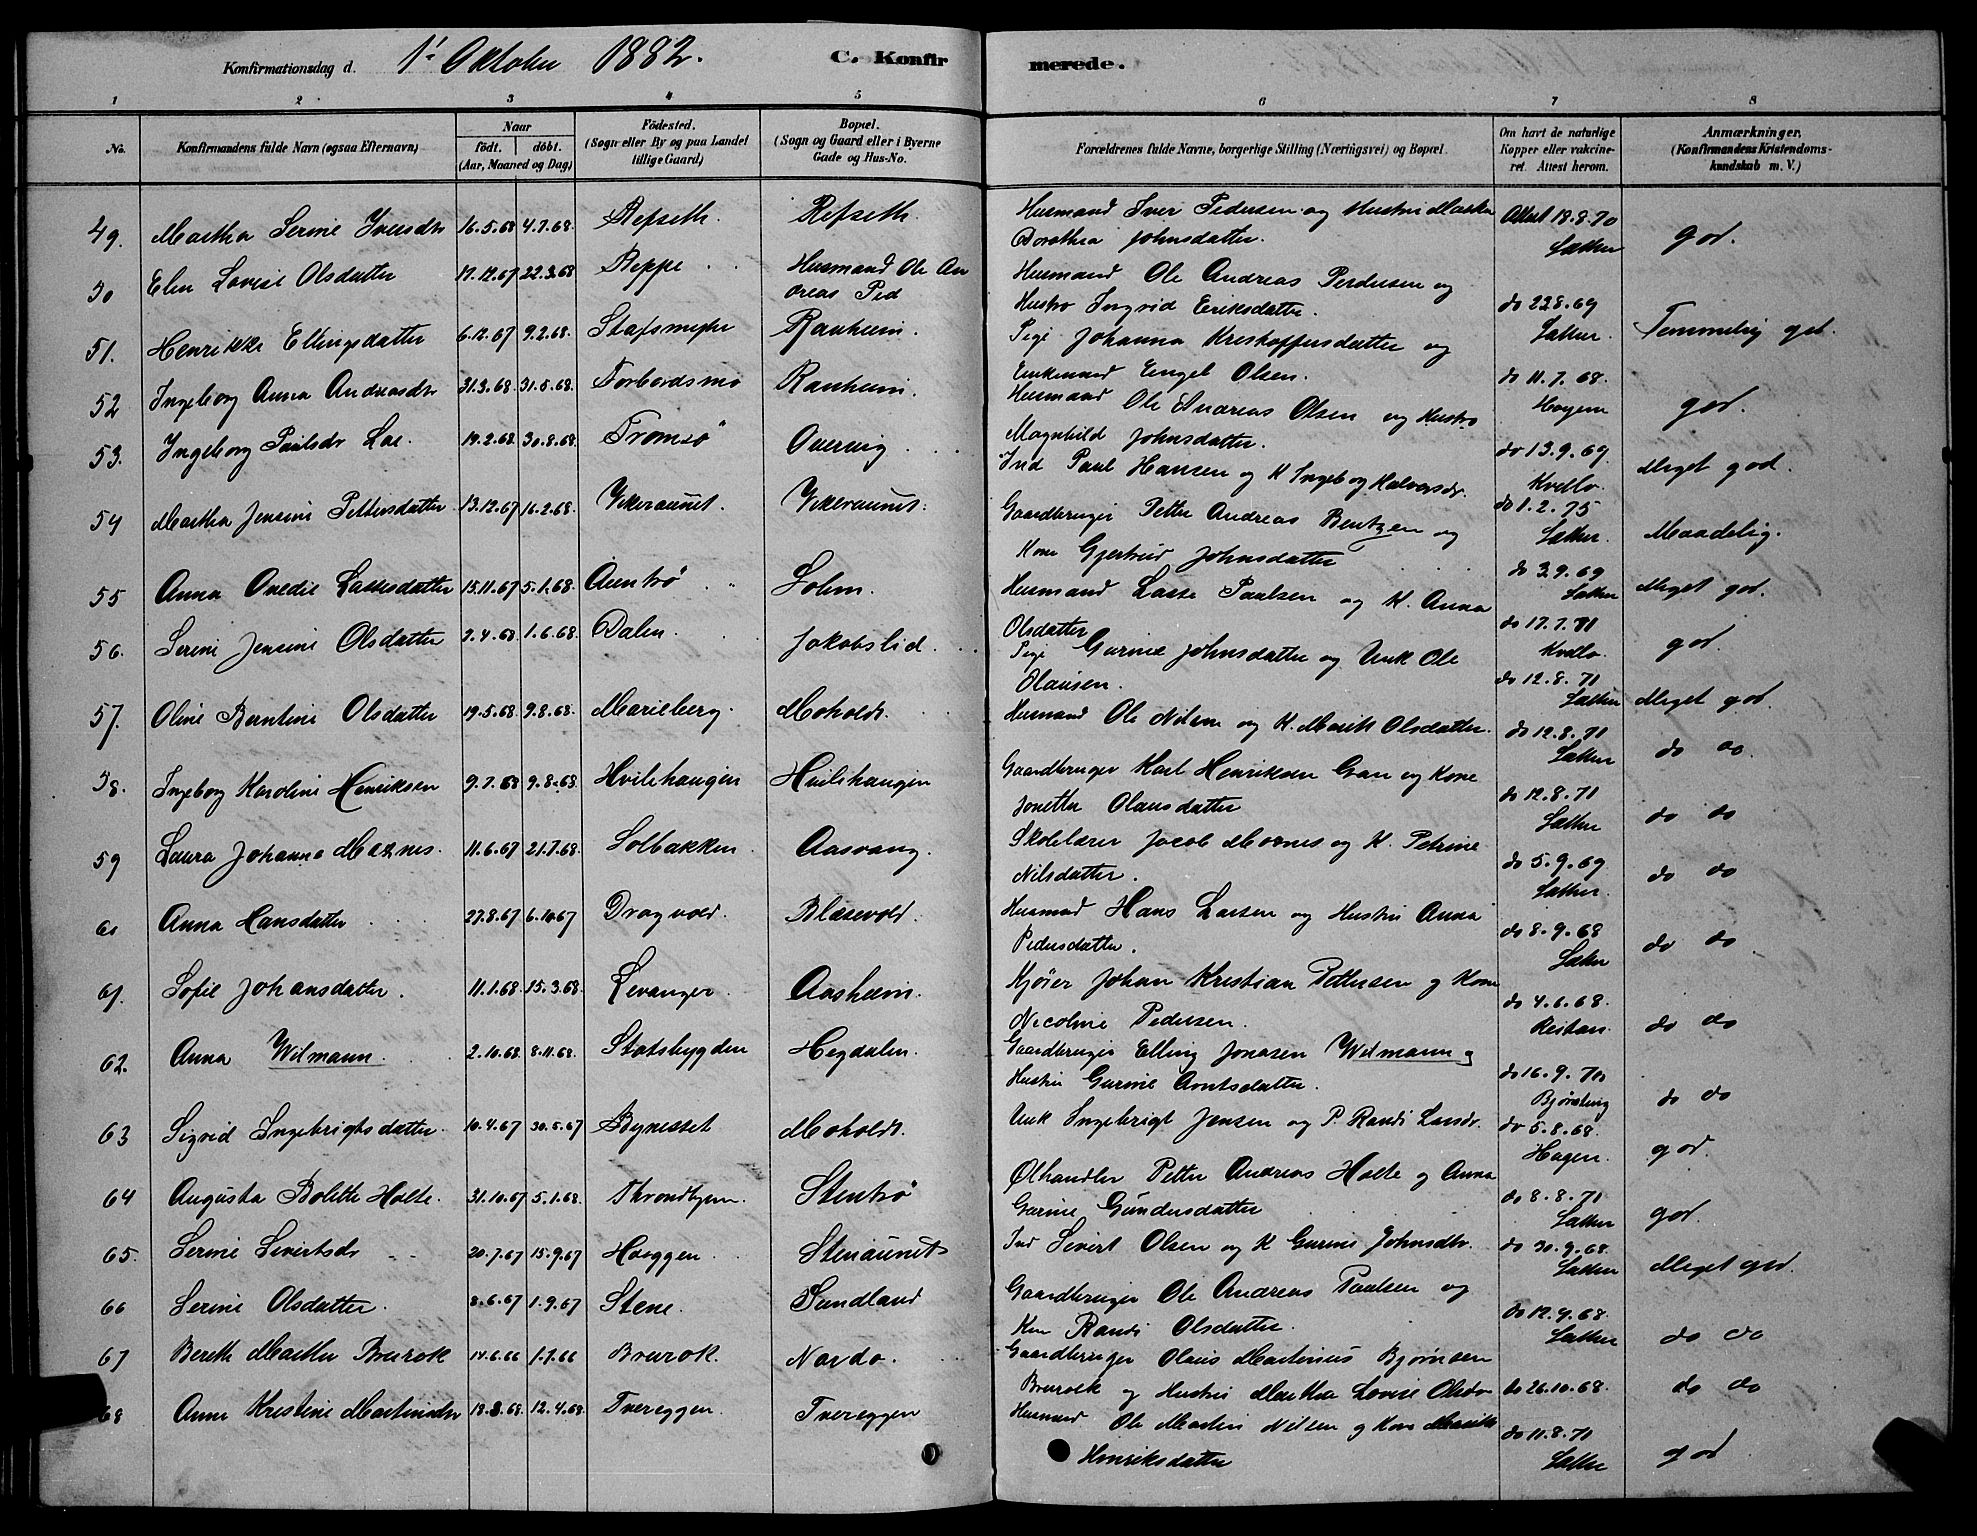 Konfirmationsdag d. 1' Oktober 1882. C. Konfirmerede.
1 2 3 4 5 6 7 8
No. Konfirmandens fulde Navn (ogsaa Efternavn) Naar födt. döbt. (Aar, Maaned og Dag) Födested. (Sogn eller By og paa Landet tillige Gaard) Bopæl. (Sogn og Gaard eller i Byerne Gade og Hus-No.
Forældrenes fulde Navne, borgerlige Stilling (Næringsvei) og Bopæl. Om havt de naturlige Kopper eller vakcineret. Attest herom. Anmærkninger, (Konfirmandens Kristendomskundskab m. V.)
49. Martha Serine Iversdr 16.5.68 4.7.68. Refseth. Refseth. Husmand Iver Pedersen og Hustru Martha Attest 18.8.70
Dorothea Johnsdatter. Sæther god.
50 Elen Lovise Olsdatter 17.12.67 22.3.68 Reppe Husmand Ole An
dreas Ped Husmand Ole Andreas Perdersen og
Hustro Ingrid Eriksdatter. do 22.8.69
51. Henrikke Ellingsdatter 6.12.67 9.2.68. Ranheim. Pige Johanna Kristoffersdatter og Sæther. Temmelig god.
Enkemand Engel Olsen. do 11.7.68.
52 Ingeborg Anna Andreasdr 31.3.68. 31.5.68. Torbordsmo Ranheim. Husmand Ole Andreas Olsen og Hustro Hagen god.
Magnhild Johnsdatter.
53. Ingeborg Paulsdr Lae. 19.2.68. 30.8.68. Tromsö Overvig Ind Paul Hansen og K Ingeborg Halvorsdr. do 13.9.69 Meget god.
Kvello
54 Martha Jensine Pettersdatter 13.12.67 16.2.68. Vikeraunet. Vikeraunet. Gaardbruger Petter Andreas Bentzen og do 1.2.75
Kone Gjertrud Johnsdatter Sæther. Maadelig.
55 Anna Ovedie Lassesdatter 15.11.67 5.1.68. Auntrö Solem. Husmand Lasse Paulsen og K. Anna do 3.9.69 Sæther Meget god.
Olsdatter
56. Serine Jensine Olsdatter 2.4.68. 1.6.68. Dalen. Jakobslid. Pige Gurine Johnsdatter og Unk Ole do 17.7.71 Kvello. god.
Olausen. do 12.8.71
57. Oline Berntine Olsdatter 19.5.68. 9.8.68. Marieberg. Moholdt. Husmand Ole Nilsen og K. Marit Olsdatter. Sæther Meget god.
do 12.8.71
58. Ingeborg Karoline Henriksen 9.7.68 9.8.68. Hvilehaugen Hvilehaugen Gaardbruger Karl Henriksen Gran og Kone Sæther do do
Jonetta Olausdatter do 12.8.71
59 Laura Johanna Moxnes. 11.6.67 21.7.68. Solbakken. Aasvang. Skolelærer Jacob Moxnes og K. Petrine Sæther do do
Nilsdatter. do 5.9.69
60 Anna Hansdatter 27.8.67 6.10.67 Dragvold. Blæsevold. Husmand Hans Larsen og Hustru Anna Sæther. do do
Pedersdatter. do 8.9.68
61. Sofie Johansdatter. 11.1.68. 15.3.68. Levanger. Aasheim. Kjøier Johan Kristian Pettersen og Kone Sæther do do
Nicoline Pedersen. do 4.6.68.
62. Anna Wilmann. 2.10.68. 8.11.68. Statsbygden Hegdalen. Gaardbruger Elling Jonasen Wilmann og Reitan do do
Hustru Gurine Arntsdatter. do 16.9.70
63 Sigrid Ingebrigtsdatter. 10.4.67 30.5.67 Bynesset Moholdt. Unk Ingebrigt Jensen og P. Randi Larsdr. Bjørsting do do
do 5.8.68.
64 Augusta Bolette Holte. 31.10.67 5.1.68. Throndhjem. Stentrö Ølhandler Petter Andreas Holte og Anna Hagen. god.
Gurine Gundersdatter do 8.8.71
65. Serine Sivertsdr 20.7.67 15.9.67 Haaggen Stenaunet Ind Sivert Olsen og K Gurine Johnsdtr. Sæther god.
do 30.9.68.
66 Serine Olsdatter. 8.6.67 1.9.67 Stene. Sundland Gaardbruger Ole Andreas Paulsen og Sæther Meget god.
Kone Randi Olsdatter. do 12.9.68
67 Bereth Martha Brurok 14.6.66 1.7.66 Brurok. Nardo. Gaardbruger Olaus Martinus Bjørnsen Sæther do do
Brurok og Hustru Martha Lovise Olsdr do 26.10.68. do do
68 Anne Kristine Martinsdr 18.3.68. 12.4.68. Tvereggen. Tvereggen Husmand Ole Martin Nilsen og Kone Marith do 11.8.71
Henriksdatter Sæther god